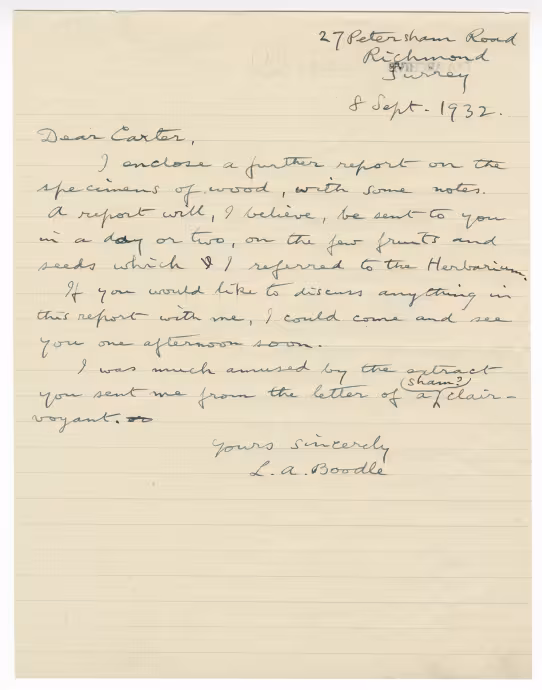 27 Petersham Road
Richmond
Surrey
8 Sept. 1932.
Dear Carter,
I enclose a further report on the
specimens of wood, with some notes.
A report will, I believe, be sent to you
in a day or two, on the few fruits and
seeds which I referred to the Herbarium.
If you would like to discuss anything in
this report with me, I could come and see
you one afternoon soon.
I was much amused by the extract
you sent me from the letter of a (sham?) clair-
voyant.
Yours sincerely
L. A. Boodle